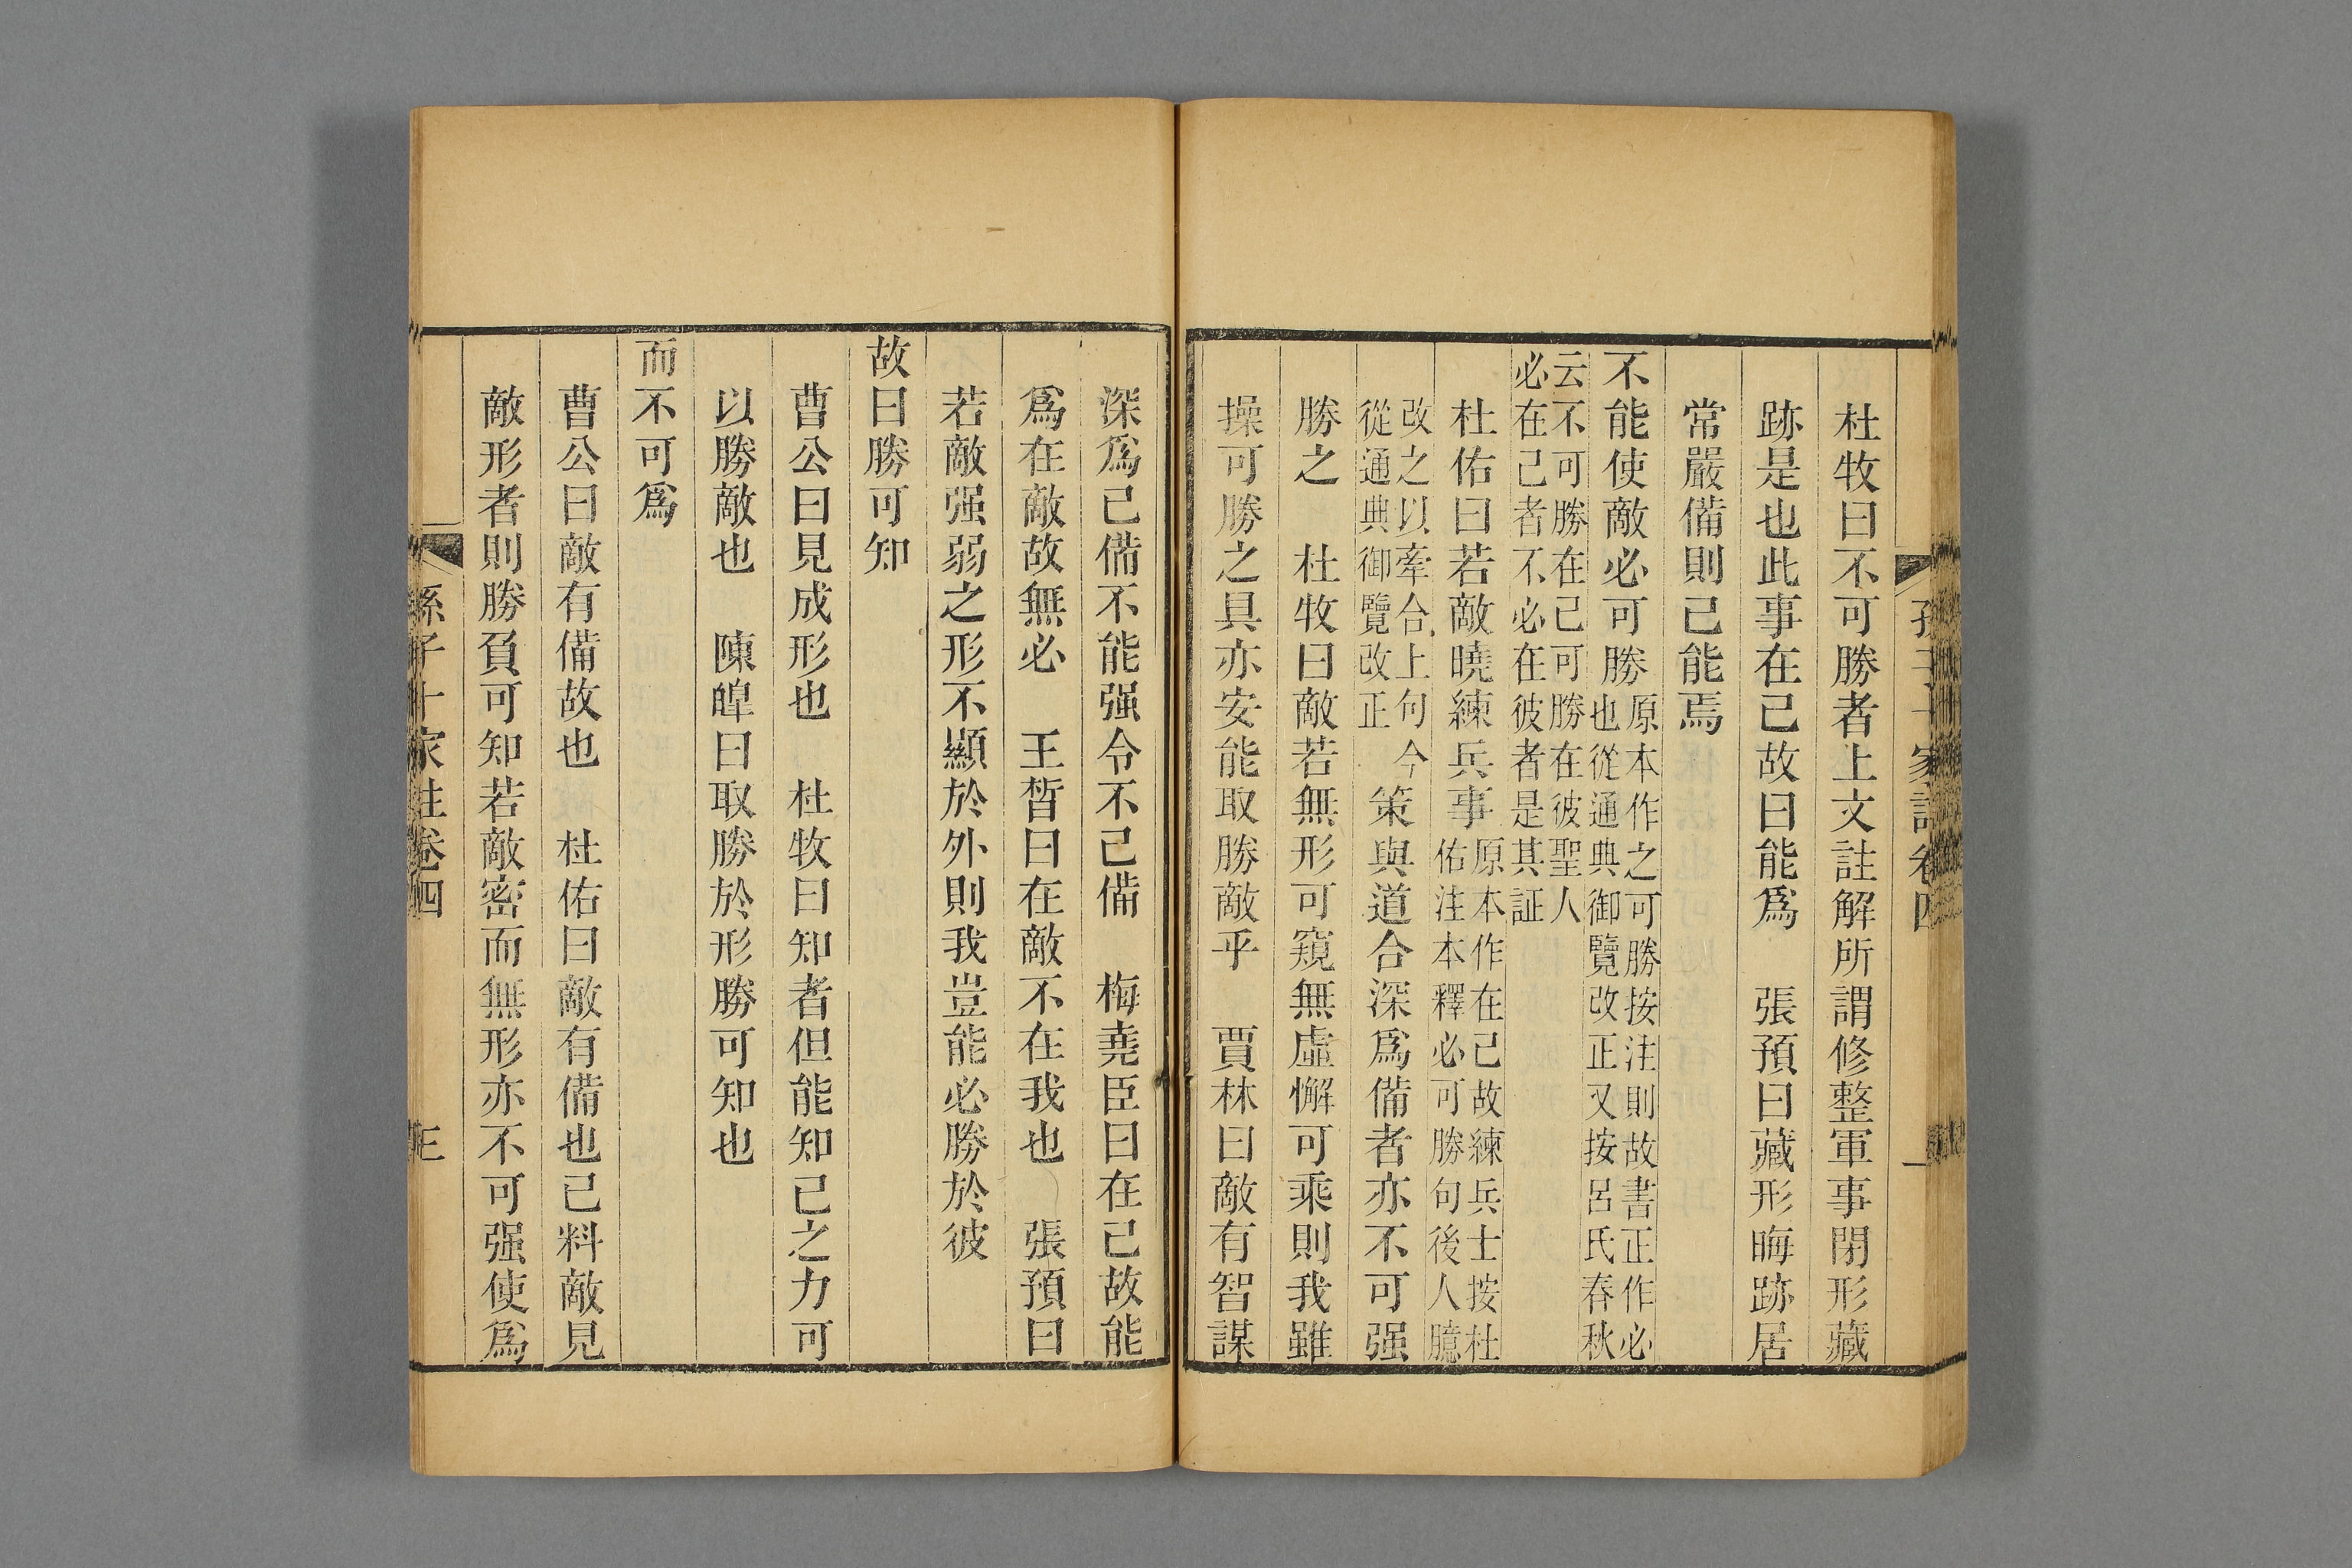 孫子十家註卷四
杜牧曰不可勝者上文註解所謂修整軍事閉形藏
跡是也此事在己故曰能爲　張預曰藏形晦跡居
常嚴備則己能焉
不能使敵必可勝原本作之可勝按注則故書正作必
也從通典御覽改正又按呂氏春秋
云不可勝在己可勝在彼聖人
必在己者不必在彼者是其証
杜佑曰若敵曉練兵事原本作在己故練兵士按杜
佑注本釋必可勝句後人臆
改之以牽合上句今
從通典御覽改正
策與道合深爲備者亦不可强
勝之　杜牧曰敵若無形可窺無虛懈可乘則我雖
操可勝之具亦安能取勝敵乎　賈林曰敵有智謀
深爲己備不能强令不己備　梅堯臣曰在己故能
爲在敵故無必　王晳曰在敵不在我也　張預曰
若敵强弱之形不顯於外則我豈能必勝於彼
故曰勝可知
曹公曰見成形也　杜牧曰知者但能知己之力可
以勝敵也　陳皥曰取勝於形勝可知也
而不可爲
曹公曰敵有備故也　杜佑曰敵有備也己料敵見
敵形者則勝負可知若敵密而無形亦不可强使爲
孫子十家註卷四